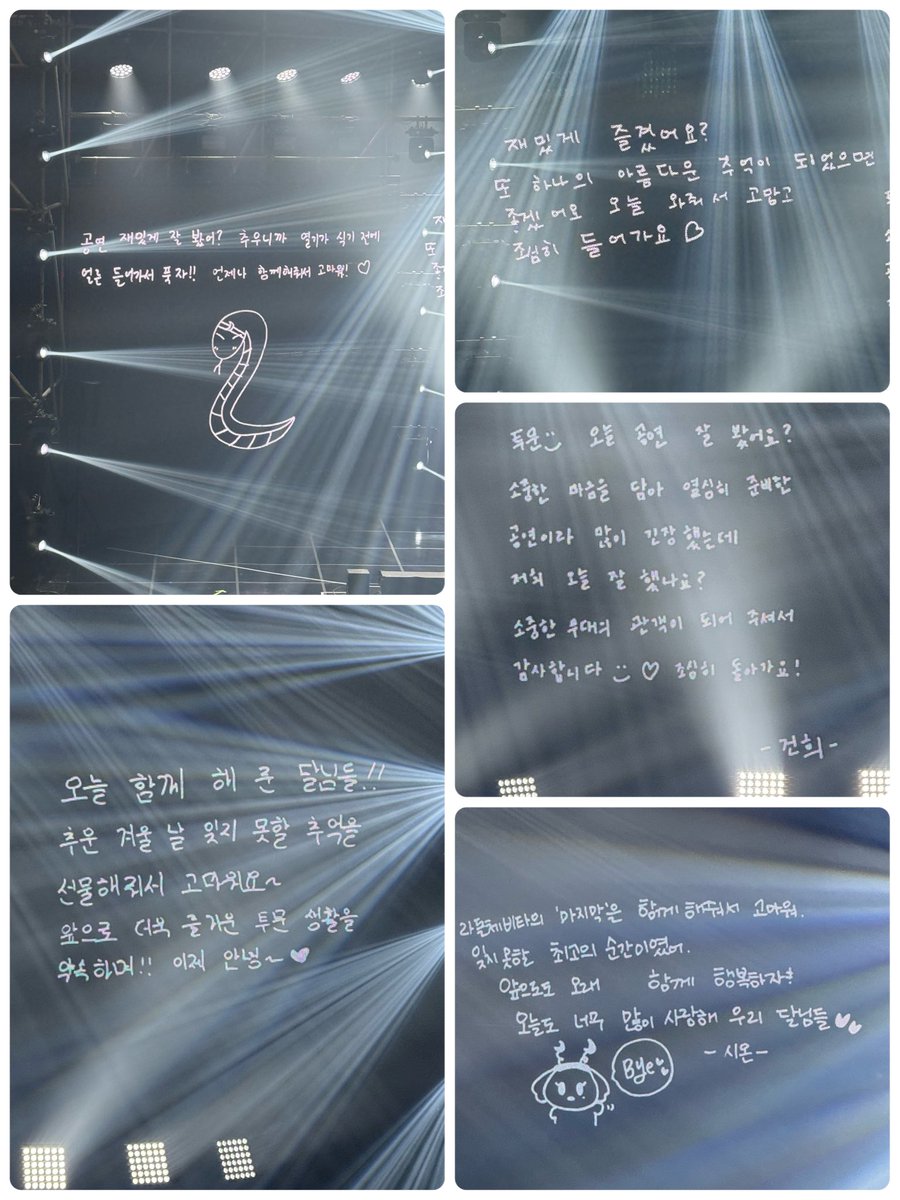 공연 재밌게 잘 봤어? 추우니까 열기가 식기 전에
얼른 들어가서 푹자!! 언제나 함께해줘서 고마워! ♡
재밌게 즐겼어요?
또 하나의 아름다운 추억이 되었으면
좋겠어요 오늘 와줘서 고맙고
조심히 들어가요 ♡
투문:) 오늘 공연 잘 봤어요?
소중한 마음을 담아 열심히 준비한
공연이라 많이 긴장했는데
저희 오늘 잘 했나요?
소중한 무대의 관객이 되어 주셔서
감사합니다 :) ♡ 조심히 돌아가요!
-건희-
오늘 함께 해 준 달님들!!
추운 겨울 날 잊지 못할 추억을
선물해줘서 고마워요~
앞으로 더욱 즐거운 투문 생활을
약속하며!! 이제 안녕~ ♥
라돌체비타의 '마지막'은 함께 해줘서 고마워.
잊지 못할 최고의 순간이였어.
앞으로도 오래 함께 행복하자!
오늘도 너무 많이 사랑해 우리 달님들 ♥♥
-시온-
Bye